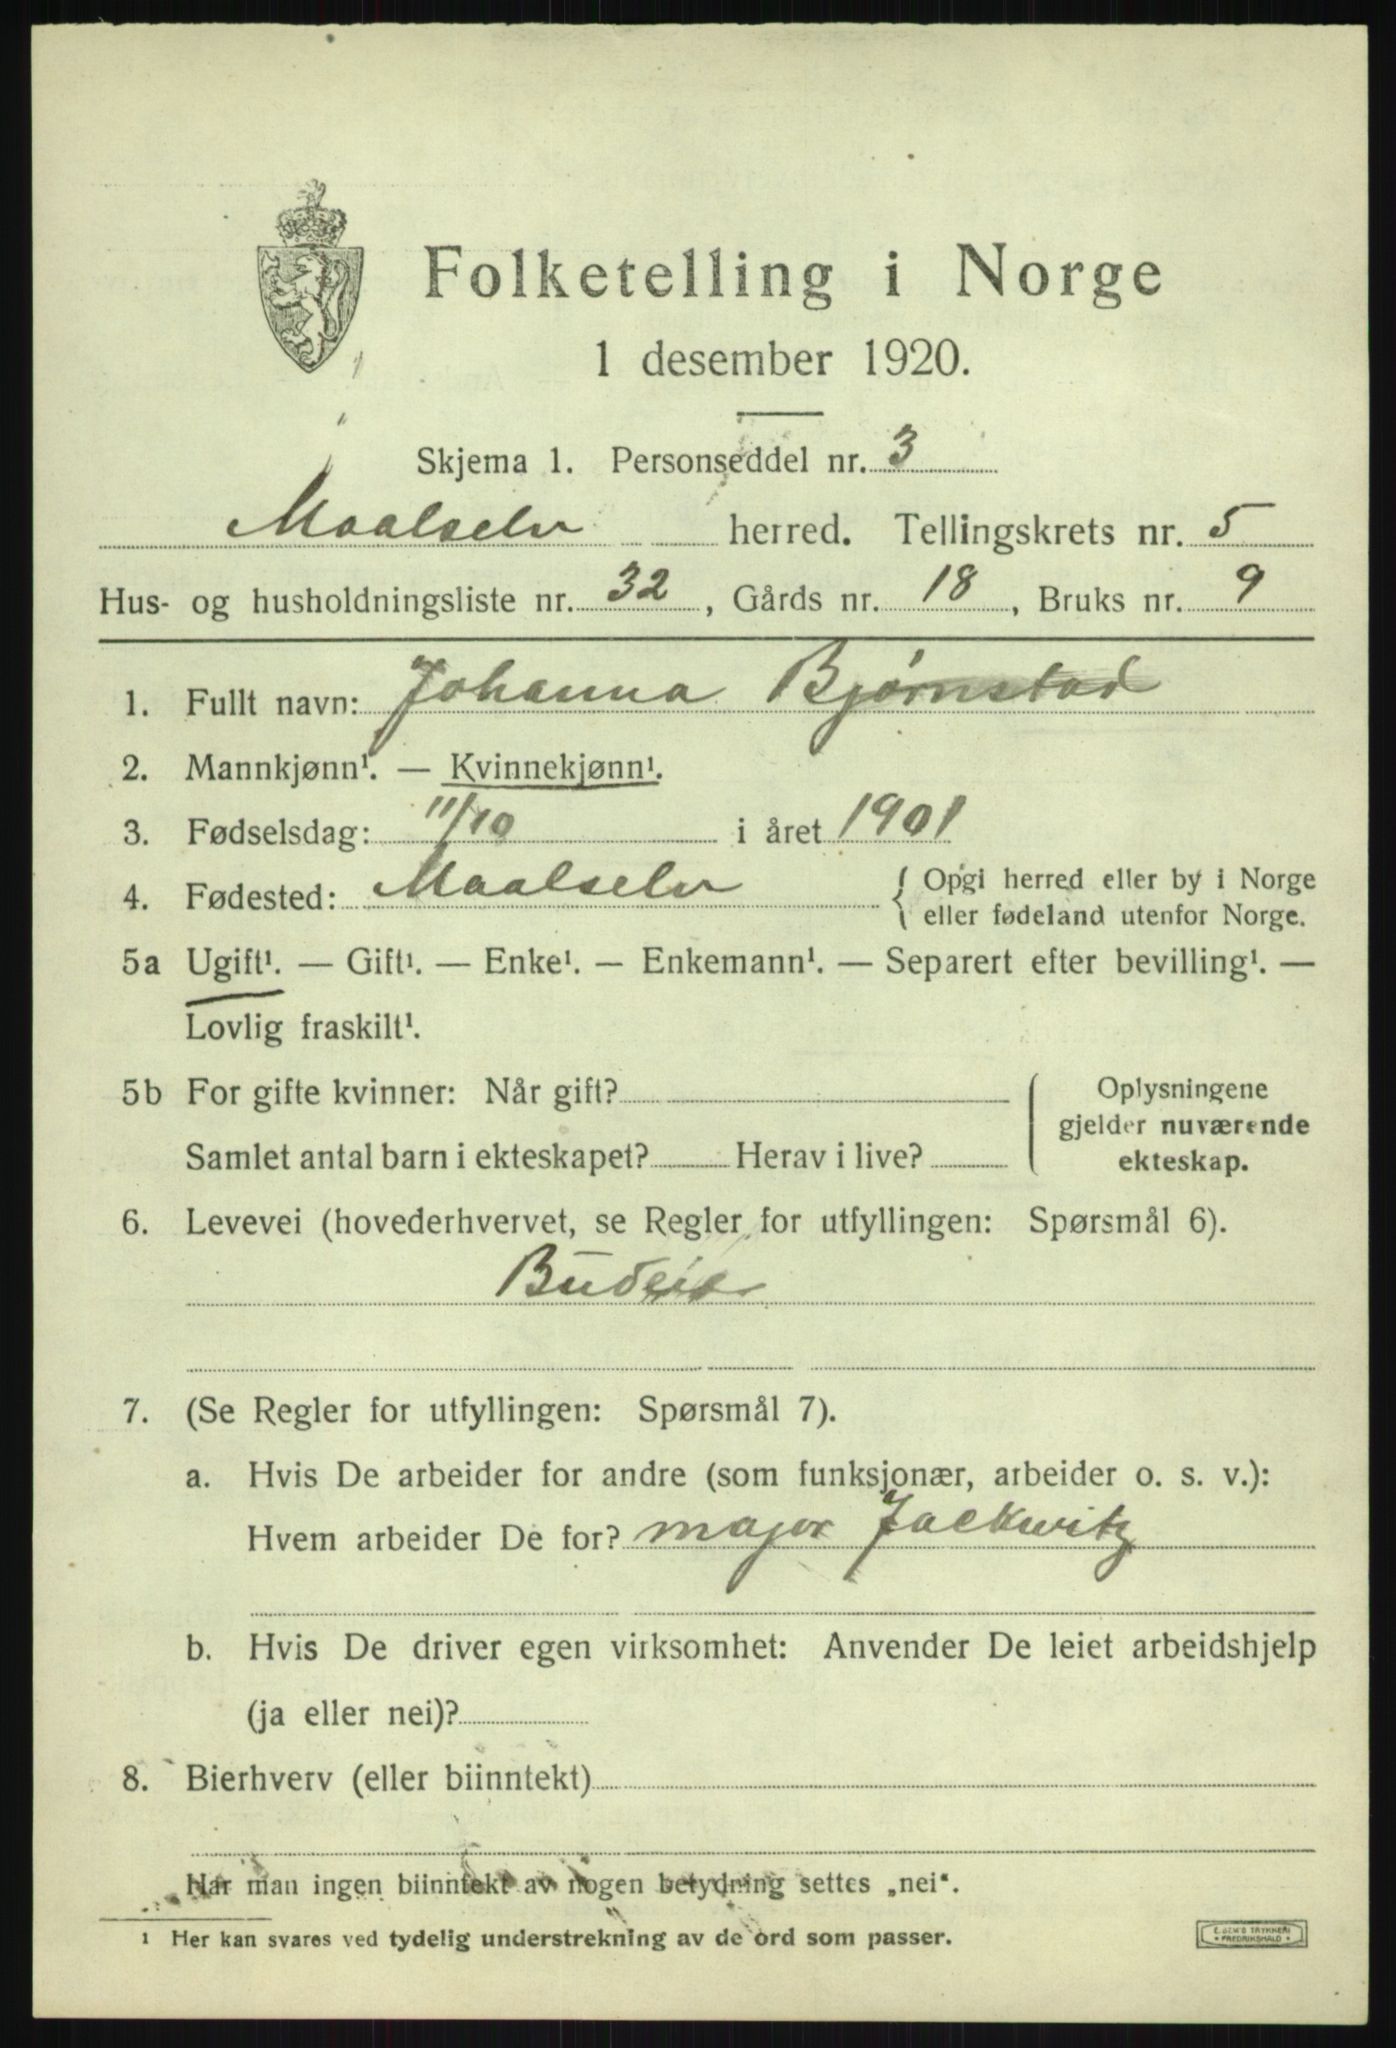 Folketelling i Norge
1 desember 1920.
Skjema 1. Personseddel nr. 3
Maalselv herred. Tellingskrets nr. 5
Hus- og husholdningsliste nr. 32, Gårds nr. 18, Bruks nr. 9
1. Fullt navn: Johanna Bjørnstad
2. Mannkjønn¹. — Kvinnekjønn¹.
3. Fødselsdag: 11/10 i året 1901
4. Fødested: Maalselv { Opgi herred eller by i Norge
eller fødeland utenfor Norge.
5a Ugift¹. — Gift¹. — Enke¹. — Enkemann¹. — Separert efter bevilling¹. —
Lovlig fraskilt¹.
5b For gifte kvinner: Når gift?
Samlet antal barn i ekteskapet? Herav i live?
Oplysningene
gjelder nuværende
ekteskap.
6. Levevei (hovederhvervet, se Regler for utfyllingen: Spørsmål 6).
Budeie
7. (Se Regler for utfyllingen: Spørsmål 7).
a. Hvis De arbeider for andre (som funksjonær, arbeider o. s. v.):
Hvem arbeider De for? major Jackwitz
b. Hvis De driver egen virksomhet: Anvender De leiet arbeidshjelp
(ja eller nei)?
8. Bierhverv (eller biinntekt)
Har man ingen biinntekt av nogen betydning settes „nei“.
¹ Her kan svares ved tydelig understrekning av de ord som passer.